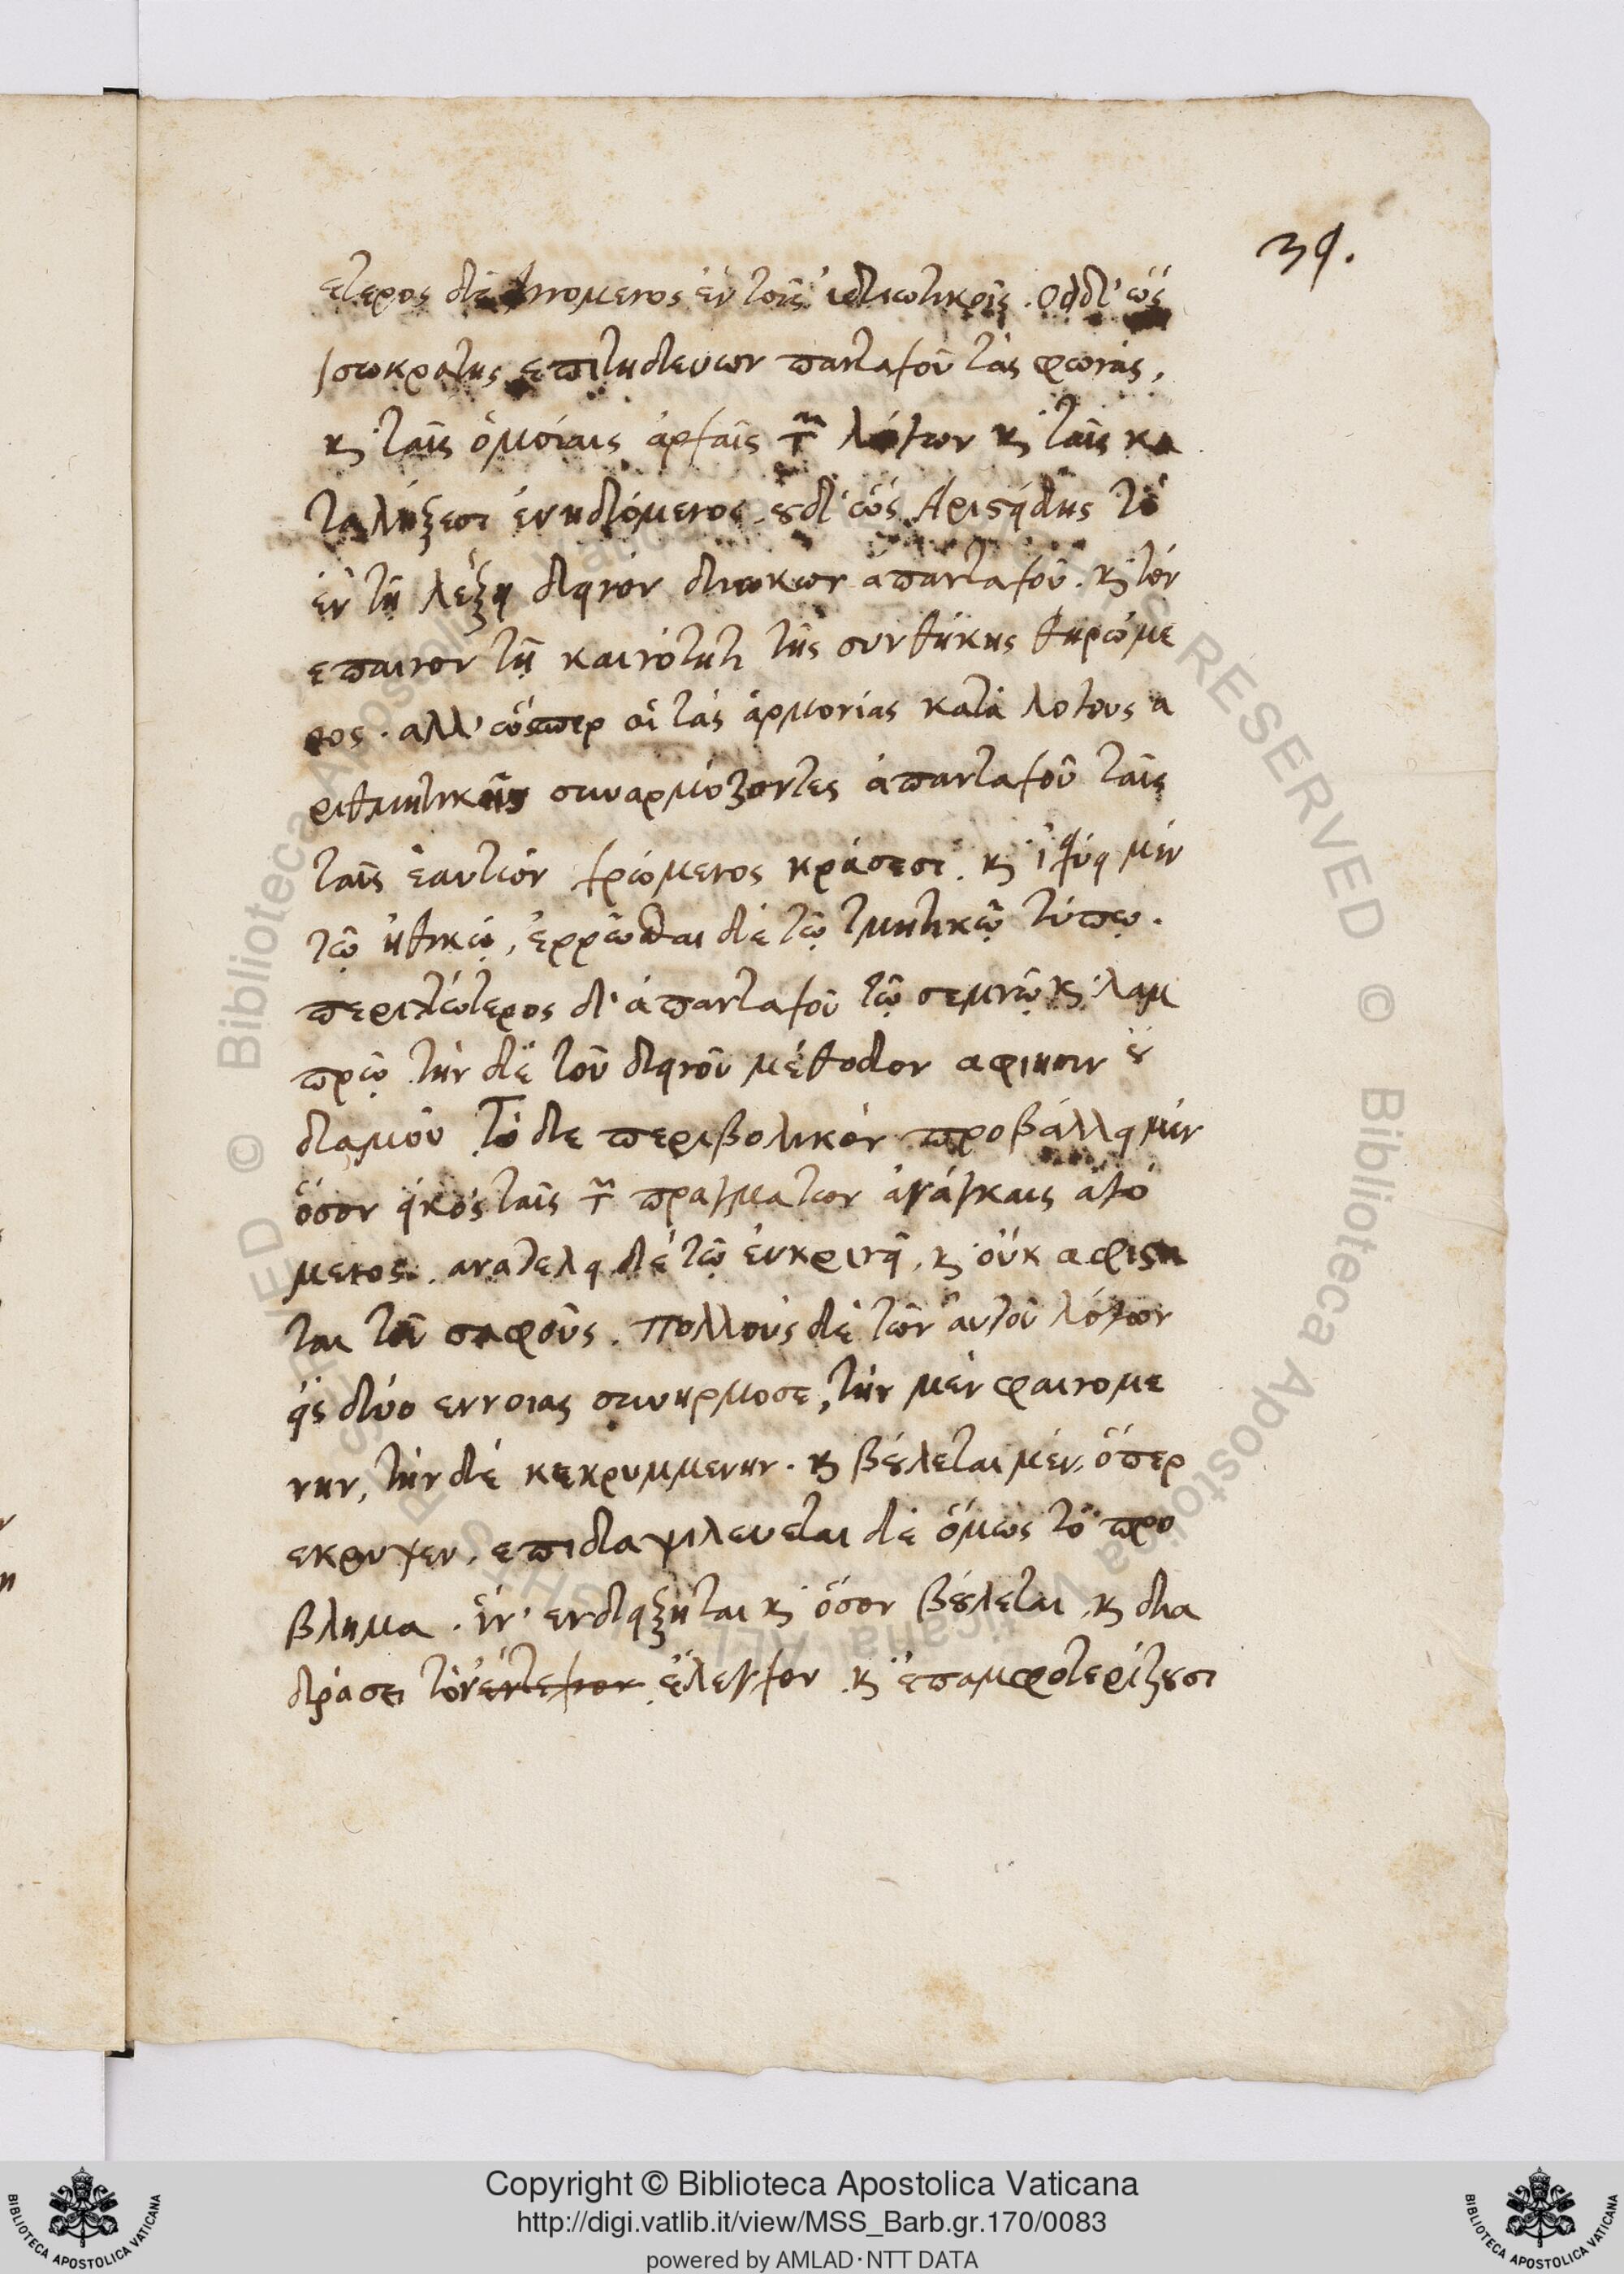 39.
ετερος δὲ γινομενος ἐν τοῖς ἰδιωτικοῖς . οὐδ' ὡς
ἰσωκρατης επιτηδευων πανταχοῦ τὰς φωνὰς,
κ̀ ταῖς ὁμοίαις ἀρχαῖς τ͂ λόγων κ̀ ταῖς κα
ταλήξεσι ἐνηδόμενος . ȣδ' ὡς Αριστείδης τὸ
ἐν τῆ λέξει δεινὸν διωκων ἁπανταχοῦ . κ̀ τὸν
επαινον τῆ καινότητι τῆς συνθήκης θηρώμε
νος . αλλ' ὥσπερ οἱ τὰς ἁρμονίας κατὰ λογους α
ριθμητικοὺς συναρμόζοντες ἁπανταχοῦ ταῖς
ταῖς ἑαυτῶν χρώμενος κράσεσι . κ̀ ἰσχύει μὲν
τῷ ηθικῷ, ἐρρῶται δὲ τῷ τμητικῷ τύπῳ .
περιττότερος δ' ἁπανταχοῦ τῷ σεμνῷ κ̀ λαμ
πρῷ . τὴν δὲ τοῦ δεινοῦ μέθοδον αφιησιν ȣ
δαμοῦ Τὸ δε περιβολικὸν προβάλλει μὲν
ὅσον εἰκὸς ταῖς τ͂ πραγματων ἀνάγκαις ἀγό
μενος . ανατελει δὲ τῷ ἐυκρινεῖ . κ̀ οὐκ αφιστα
ται τοῦ σαφοῦς . πολλοὺς δὲ τῶν αὐτοῦ λόγων
εἰς δύο εννοιας συνηρμοσε, τὴν μὲν φαινομε
νην, τὴν δὲ κεκρυμμενην . κ̀ βȣ́λεται μὲν, ὅπερ
εκρυψεν, επιδαψιλευεται δὲ ὅμως τὸ προ
βλημα . ἵν' ενδείξηται κ̀ ὅσον βȣ́λεται . κ̀ δια
δράσει τὸν ἔλεγχον . κ̀ ἐπαμφοτερίζȣσι
Copyright © Biblioteca Apostolica Vaticana
http://digi.vatlib.it/view/MSS_Barb.gr.170/0083
powered by AMLAD·NTT DATA